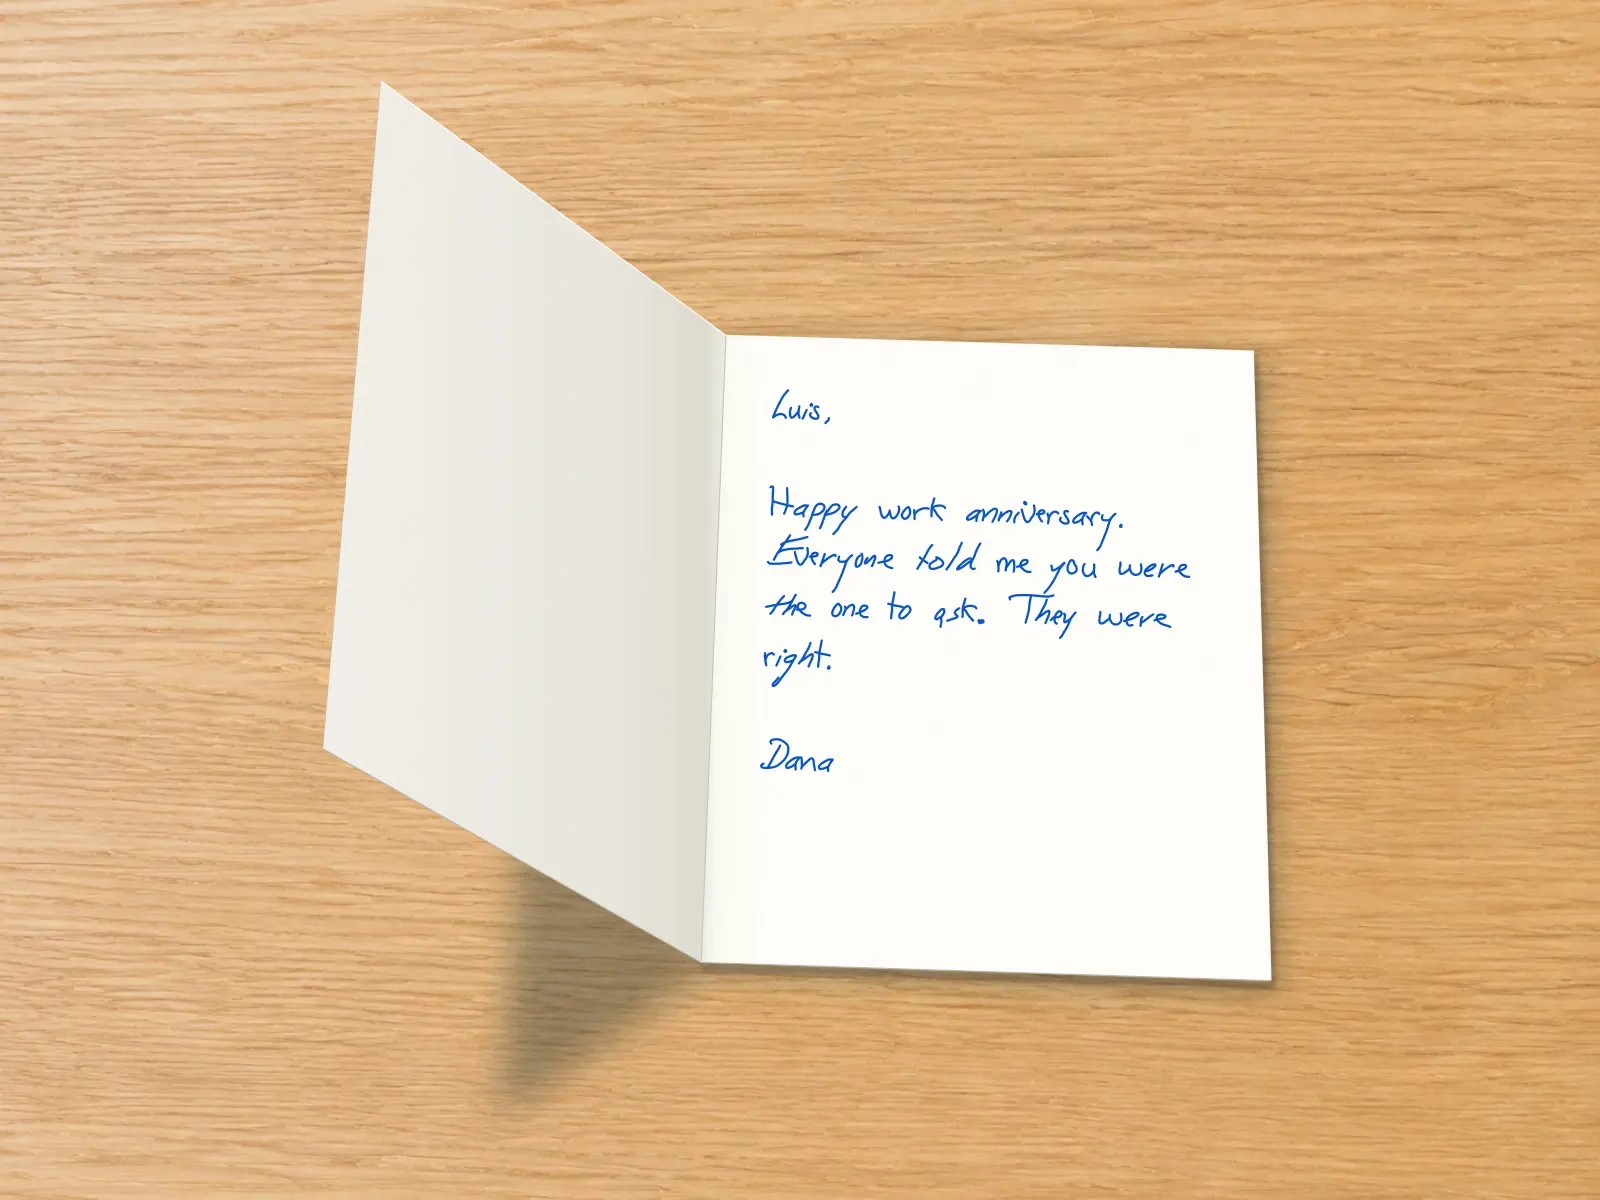 Luis,
Happy work anniversary.
Everyone told me you were
the one to ask. They were
right.
Dana